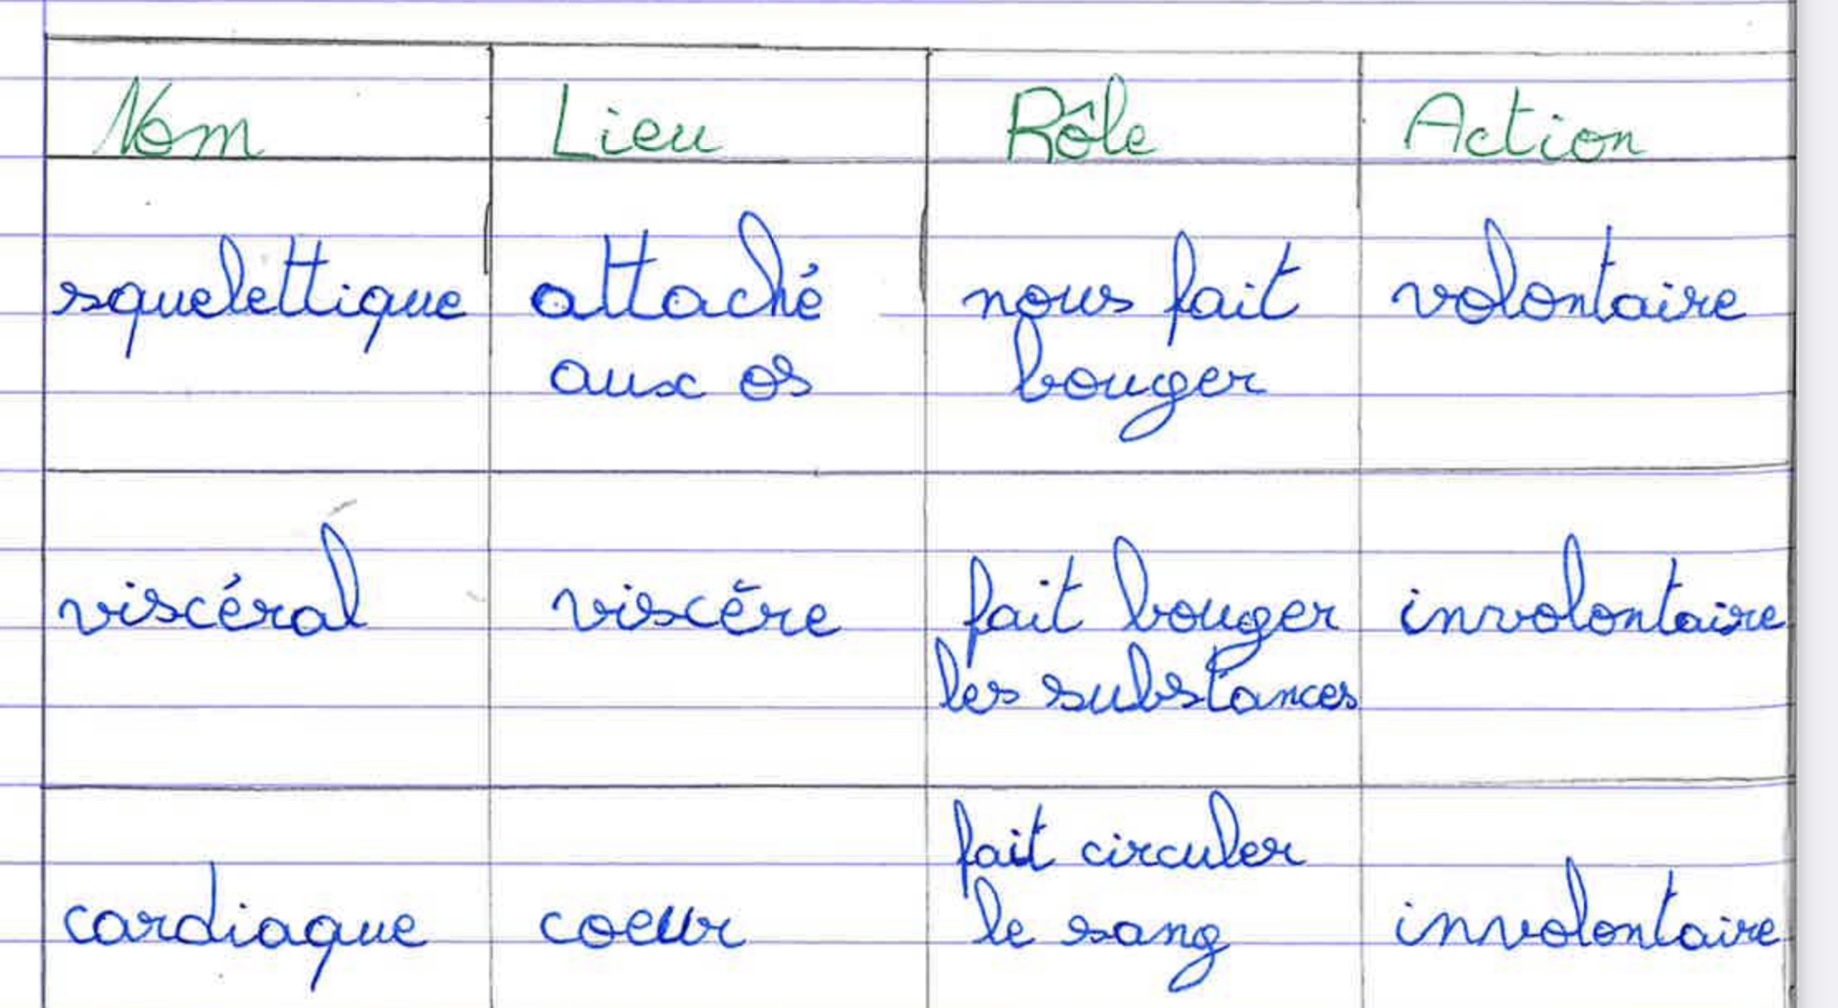 Nom Lieu Rôle Action
squelettique attaché nous fait volontaire
aux os bouger
viscéral viscère fait bouger involontaire
les substances
fait circuler
cardiaque coeur le sang involontaire